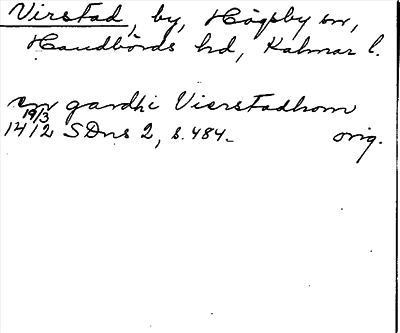 Virstad, by, Högsby sn,
Handbörds hd, Kalmar l.
en gardh i Vierstadhom
19/3
1412 SDns 2, s. 484.
orig.